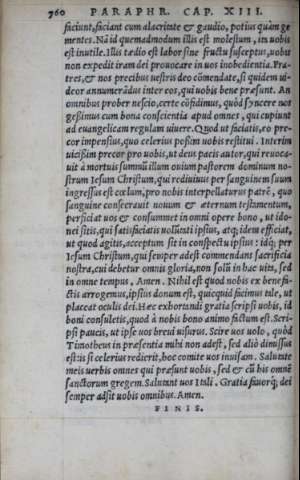 760 PARAPHR. CAP. XIII.
faciunt, faciant cum alacritate & gaudio, potius quàm ge
mentes. Nā id quemadmodum illis est molestum, ita uobis
est inutile. Illis tædio est labor sine fructu susceptus, uobis
non expedit iram dei prouocare in uos inobedientia. Fra-
tres, & nos precibus uestris deo cōmendate, siquidem ui-
deor annumerādus inter eos, qui uobis bene præsunt. An
omnibus prober nescio, certe cōfidimus, quòd syncere nos
gessimus cum bona conscientia apud omnes, qui cupiunt
ad euangelicam regulam uiuere. Quod ut faciatis, eo pre-
cor impensius, quo celerius possim uobis restitui. Interim
uicissim precor pro uobis, ut deus pacis autor, qui reuoca-
uit à mortuis summū illum ouium pastorem dominum no-
strum Iesum Christum, qui rediuiuus per sanguinem suum
ingressus est cœlum, pro nobis interpellaturus patrē, quo
sanguine consecrauit nouum & æternum testamentum,
perficiat uos & consummet in omni opere bono, ut ido-
nei sitis, qui satisfaciatis uolūtati ipsius, atq; idem efficiat,
ut quod agitis, acceptum sit in conspectu ipsius: idq; per
Iesum Christum, qui semper adest commendans sacrificia
nostra, cui debetur omnis gloria, non solū in hac uita, sed
in omne tempus, Amen. Nihil est quod nobis ex benefi-
ctis arrogemus, ipsius donum est, quicquid facimus tale, ut
placeat oculis dei. Hæc exhortandi gratia scripsi uobis, id
boni consuletis, quod à nobis bono animo factum est. Scri-
psi paucis, ut ipse uos breui uisurus. Scire uos uolo, quòd
Timotheus in præsentia mihi non adest, sed aliò dimissus
est: is si celerius redierit, hoc comite uos inuisam. Salutate
meis uerbis omnes qui præsunt uobis, sed & cū his omnē
sanctorum gregem. Salutant uos Itali. Gratia fauorq; dei
semper adsit uobis omnibus. Amen.
FINIS.